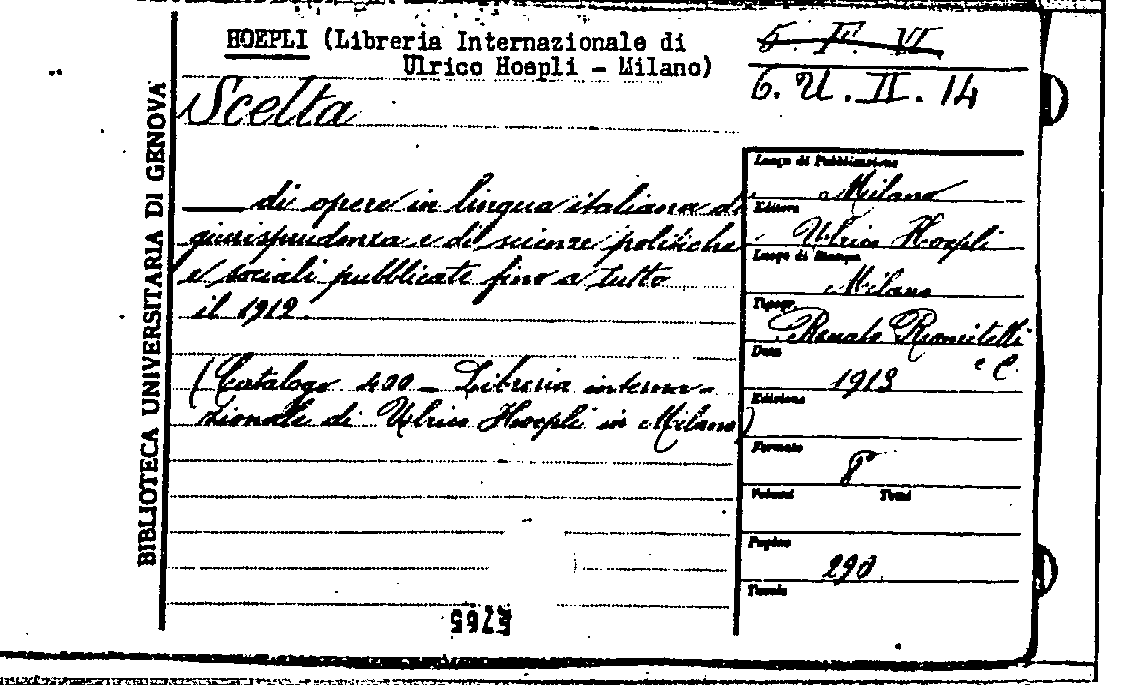 HOEPLI (Libreria Internazionale di
Ulrico Hoepli - Milano)
5. F. VI
6. U. II. 14
Scelta
di opere in lingua italiana di
giurisprudenza e di scienze politiche
e sociali pubblicate fino a tutto
il 1912.
(Catalogo 400 - Libreria interna-
zionale di Ulrico Hoepli in Milano)
BIBLIOTECA UNIVERSITARIA DI GENOVA
Luogo di Pubblicazione
Milano
Editore
Ulrico Hoepli
Luogo di Stampa
Milano
Tipogr.
Renato
e C.
Data
1913
Edizione
Formato
8°
Volumi Tomi
Pagine
290
Tavole